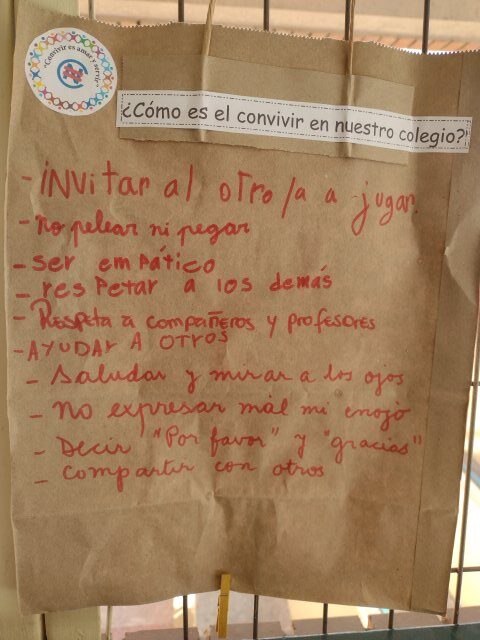 "Convivir es amar y servir"
¿Cómo es el convivir en nuestro colegio?
- iNVitar al otro/a a jugar.
- No pelear ni pegar
- ser empático
- respetar a los demás
- Respeta a compañeros y profesores
- AYUDAR A OTROS
- Saludar y mirar a los ojos
- No expresar mal mi enojo
- Decir "Por favor" y "gracias"
- Compartir con otros